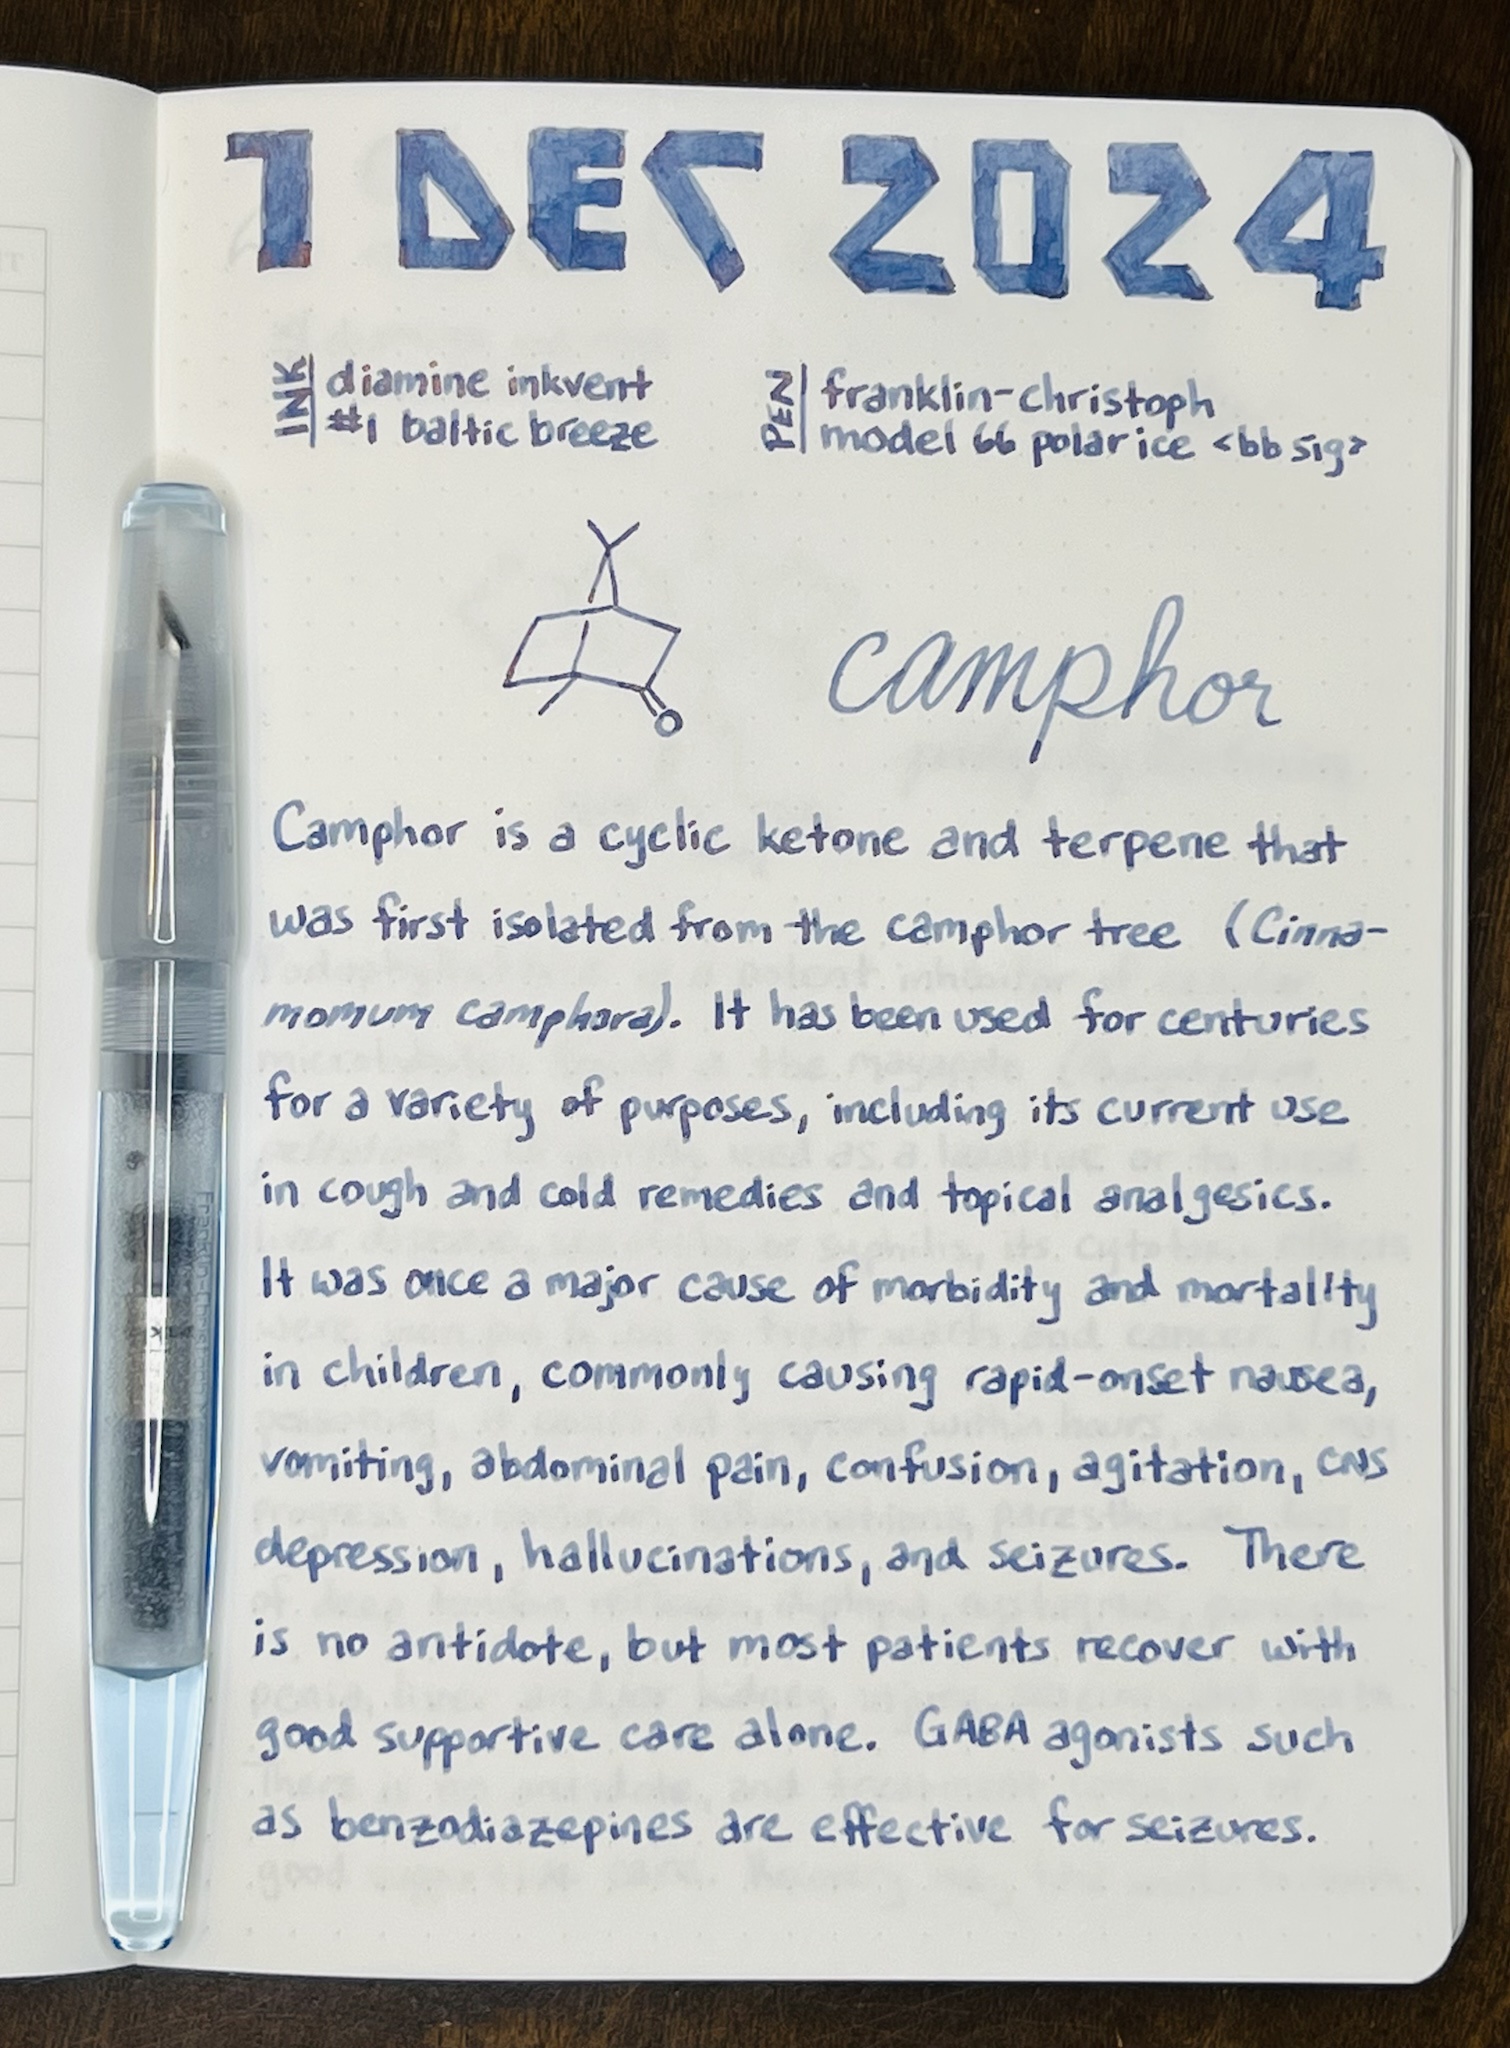 1 DEC 2024
INK diamine inkvent
#1 baltic breeze
PEN franklin-christoph
model 66 polar ice <bb sig>
O
camphor
Camphor is a cyclic ketone and terpene that
was first isolated from the camphor tree (Cinna-
momum camphora). It has been used for centuries
for a variety of purposes, including its current use
in cough and cold remedies and topical analgesics.
It was once a major cause of morbidity and mortality
in children, commonly causing rapid-onset nausea,
vomiting, abdominal pain, confusion, agitation, CNS
depression, hallucinations, and seizures. There
is no antidote, but most patients recover with
good supportive care alone. GABA agonists such
as benzodiazepines are effective for seizures.